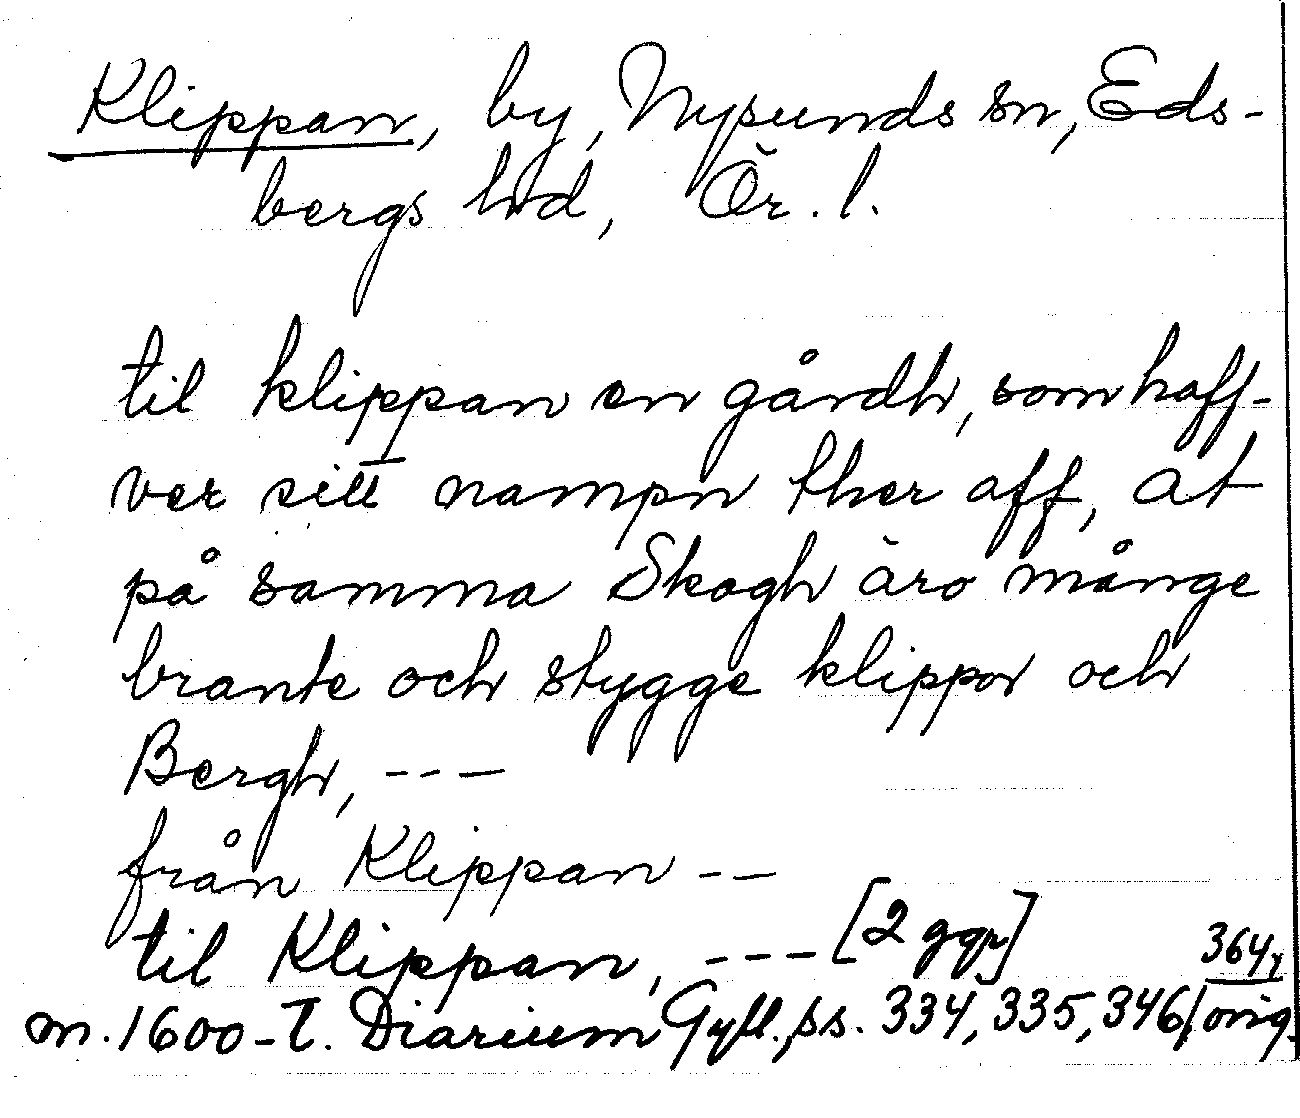 Klippan, by, Nysunds sn, Eds-
bergs hd, Ör. l.
til klippan en gårdh, som haff-
ver sitt nampn ther aff, at
på samma Skogh äro månge
brante och stygge klippor och
Bergh, ---
från Klippan --
til Klippan, --- [2 ggr]
364,
m. 1600-t. Diarium Gyll., ss. 334, 335, 346/orig.